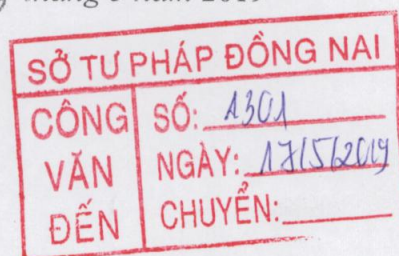 tháng 5 năm 2019
SỞ TƯ PHÁP ĐỒNG NAI
CÔNG
VĂN
ĐẾN
SỐ: 1301
NGÀY: 17/5/2019
CHUYỂN: